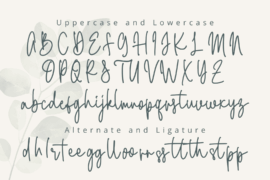 Uppercase and Lowercase
A B C D E F G H I J K L M N
O P Q R S T U V W X Y Z
a b c d e f g h i j k l m n o p q r s t u v w x y z
Alternate and Ligature
d h l r t ee gg ll oo rr ss tt th st pp